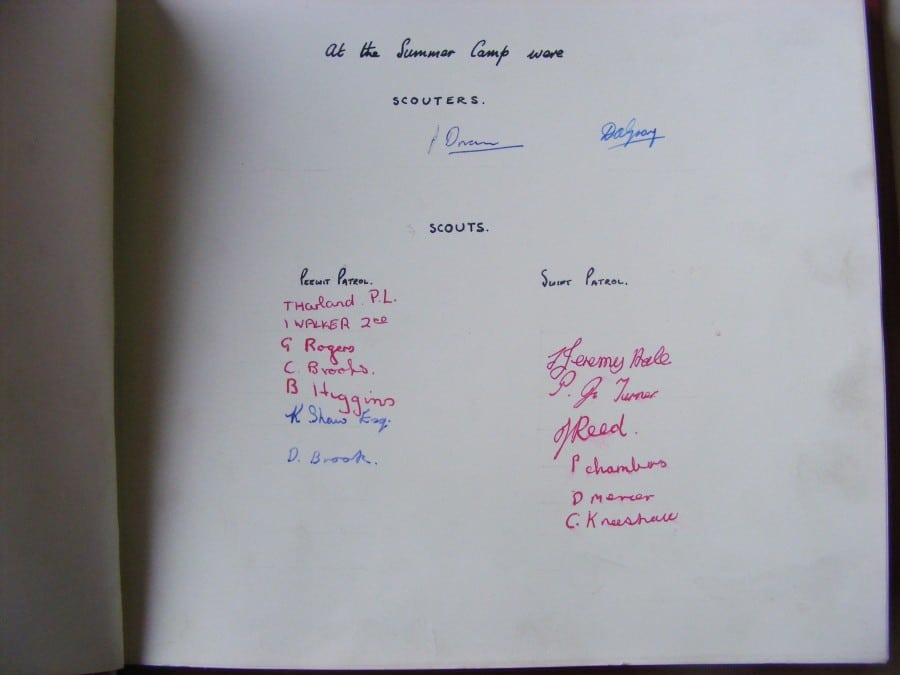 At the Summer Camp were
SCOUTERS.
DAGray
SCOUTS.
PEEWIT PATROL.
THarland P.L.
I WALKER 2nd
G Rogers
C. Brooks.
B Huggins
K Shaw Esq.
D. Brook.
SWIFT PATROL.
Jeremy Bale
P. G. Turner
J Reed.
P chambers
D mercer
C. Kneeshaw